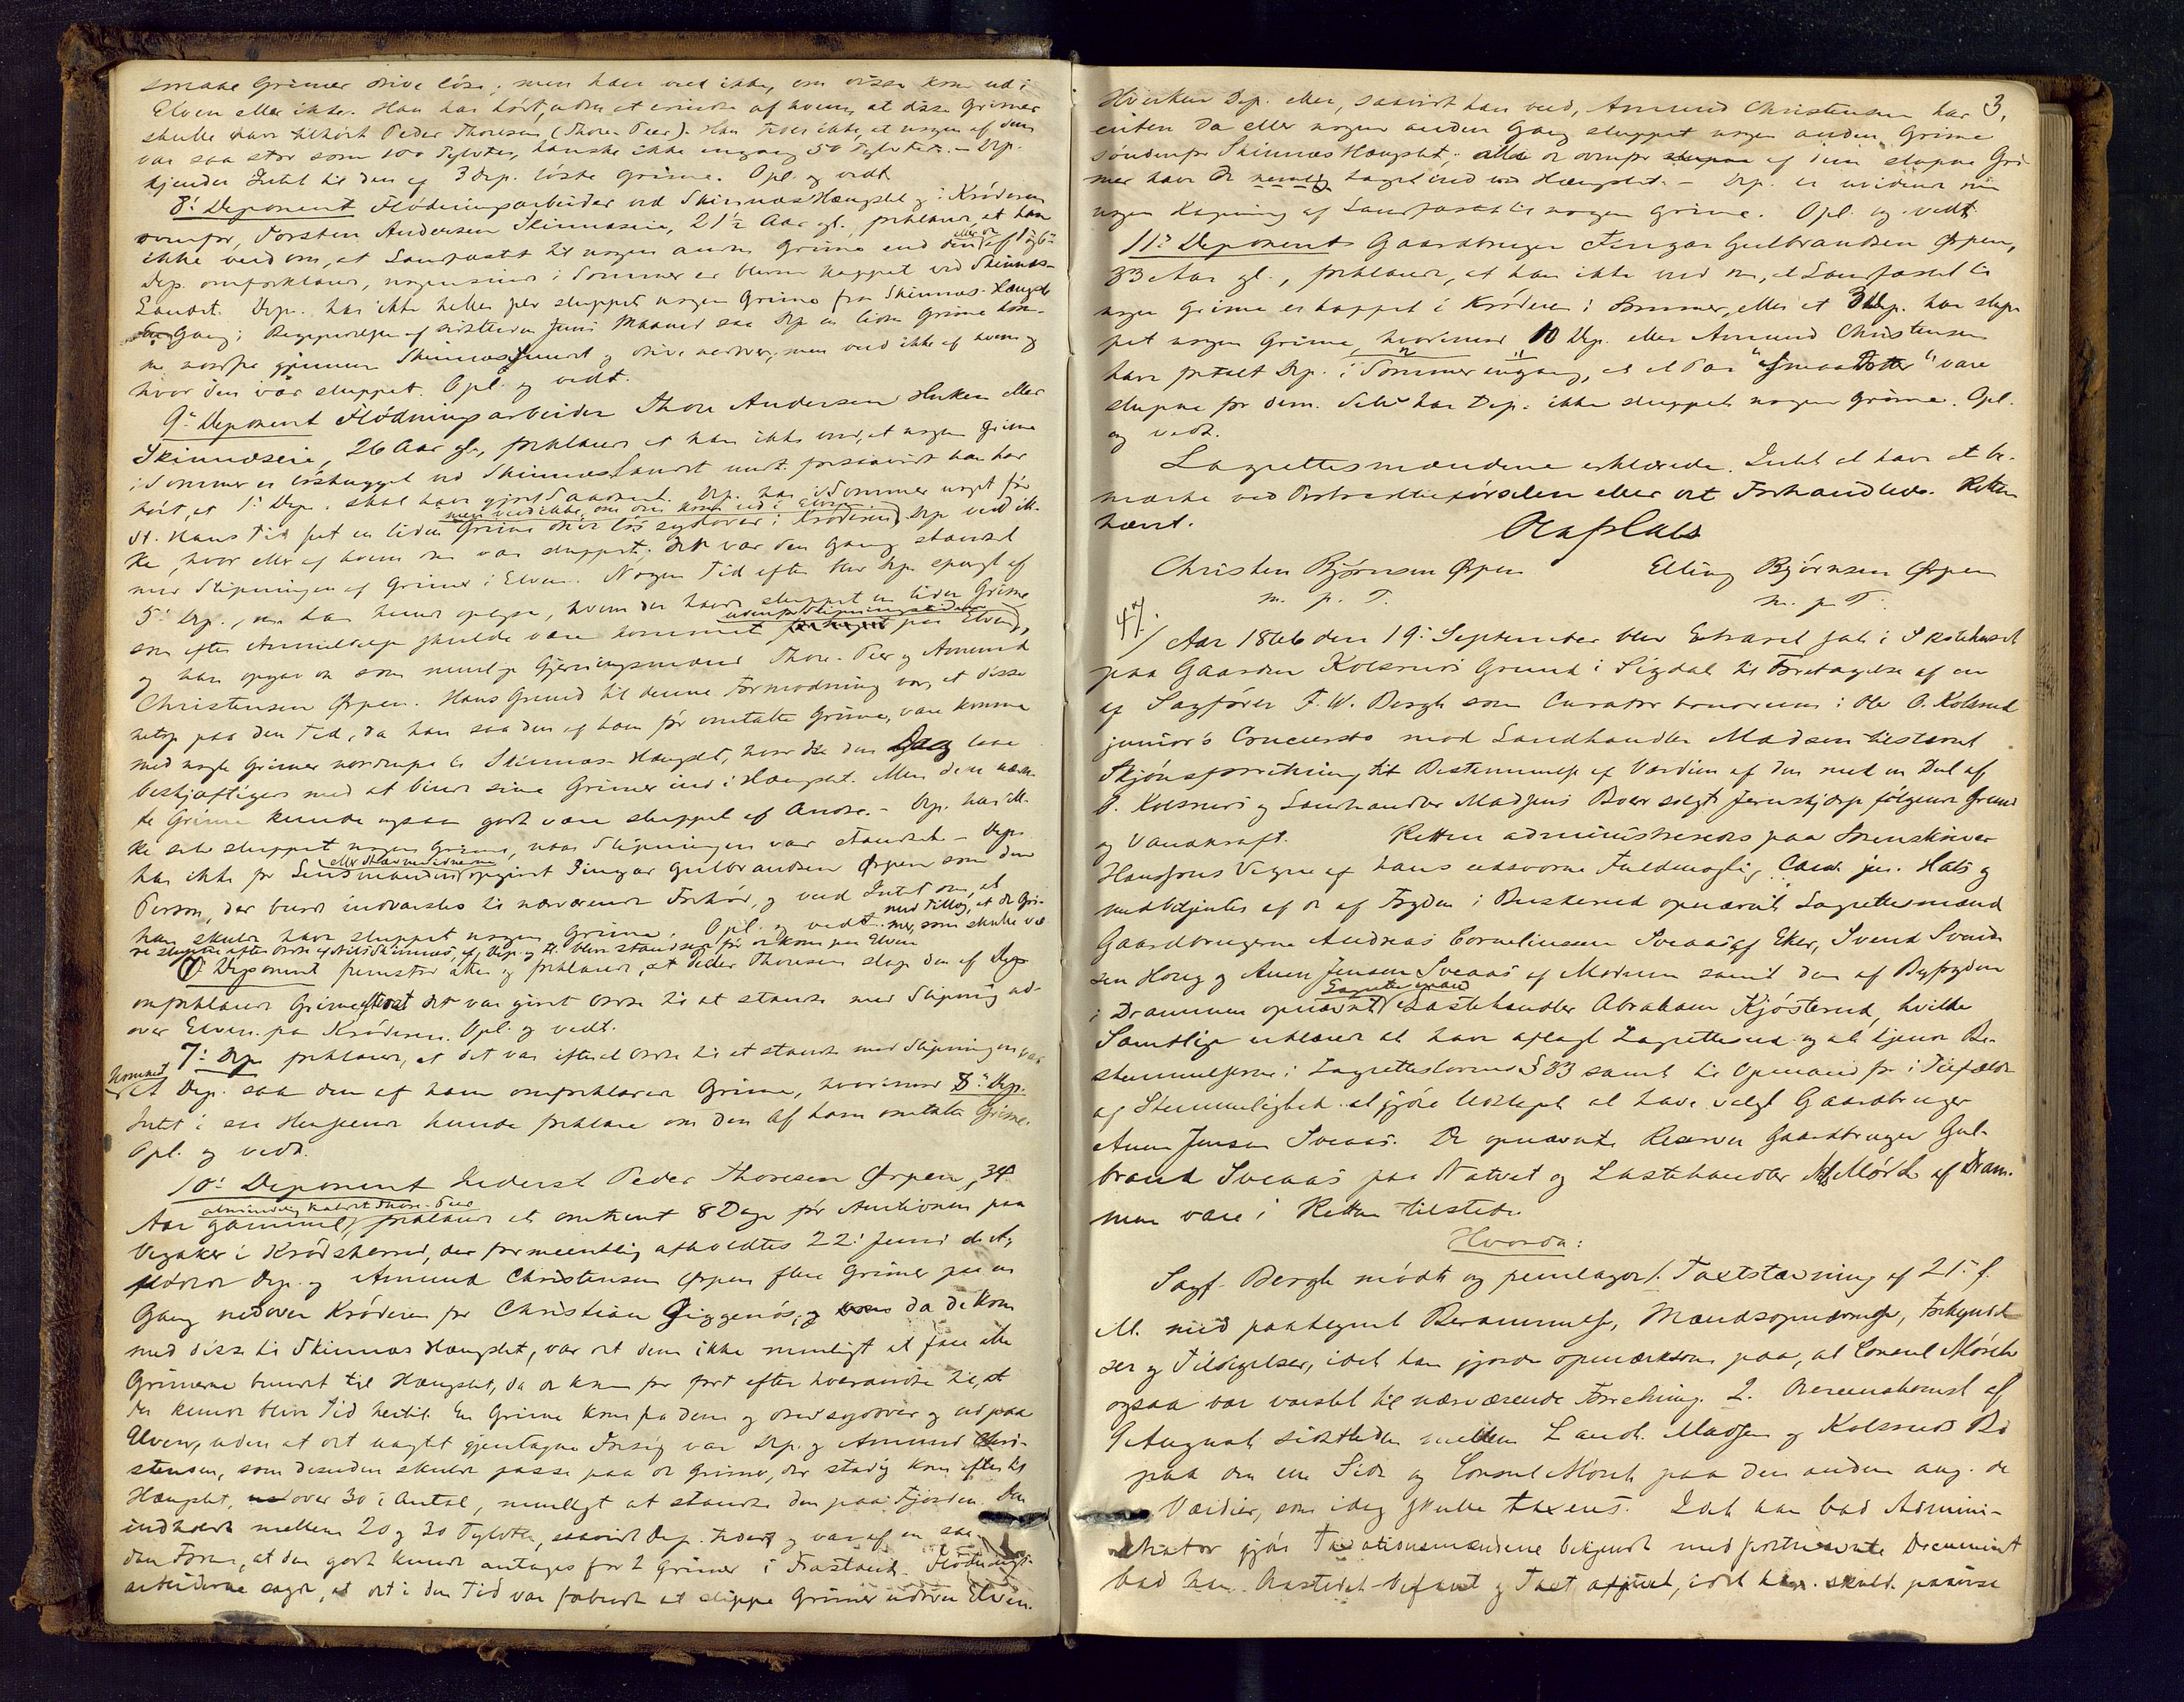 smaae Grimer drive løse; men han ved ikke, om disse kom ud i
Elven eller ikke. Han har hørt, uden at erindre af hvem, at disse Grimer
skulle have tilhørt Peder Thoresen (Thore-Peer). Han troer ikke, at nogen af dem
var saa stor som 100 Tylvter, kanske ikke engang 50 Tylvter. – Dep.
kjender Intet til den af 3 Dep. løste Grime. Opl. og vedt.
8. Deponent Flødningsarbeider ved Skinnæs Hængslet og i Krøderen
ovenfor, Torsten Andersen Skinnæseie, 21½ Aar gl., forklarer, at han
ikke ved om, at Landfæstet til nogen anden Grime end den eller de af 1 og 6
Dep. omforklarede, nogensinde i Sommer er blevet kappet ved Skinnæs-
Landet. Dep. har ikke heller før sluppet nogen Grime fra Skinnæs-Hængsle
Gang i Begyndelsen af sidstleden Juni Maaned saa Dep. en liden Grime kom-
me nordfra gjennem Skinnæs Sundet og drive nedover, men ved ikke af hvem og
hvor den var sluppet. Opl. og vedt.
9. Deponent Flødningsarbeider Thore Andersen Horken eller
Skinnæseie, 26 Aar gl., forklarer at han ikke ved, at nogen Grime
i Sommer er løshugget ved Skinnæs Landet undt. forsaavidt han har
hørt, at 1. Dep. skal have gjort Saadant. Dep. har i Sommer noget før
St. Hans Tid set en liden Grime drive løs sydover i Krøderen, men ved ikke, om den kom ud i Elven. Dep. ved ik-
ke, hvor eller af hvem den var sluppet. Det var den Gang standset
med Slipningen af Grimer i Elven. Nogen Tid efter blev Dep. spurgt af
5. Dep., om han kunde oplyse, hvem der havde sluppet en liden Grime
som efter Anmeldelse skulde være kommet udenfor Slipningstiden paa Elven,
og han opgav da som mulige Gjerningsmænd Thore-Peer og Amund
Christensen Ørpen. Hans Grund til denne Formodning var, at disse
netop paa den Tid, da han saa den af ham før omtalte Grime, vare komne
med nogle Grimer nordenfra til Skinnæs-Hængslet, hvor de den Dag vare
beskjæftigede med at binde sine Grimer ind i Hængslet. Men denne nævn-
te Grime kunde ogsaa godt være sluppet af Andre. – Dep. har ik-
ke selv sluppet nogen Grime, naar Slipningen var standset. – Dep.
har ikke for Lensmanden eller Stævnevidnerne opgivet Fingar Gulbrandsen Ørpen som den
Person, der burde indvarsles til nærværende Forhør, og ved Intet om, at
han skulde have sluppet nogen Grime. Opl. og vedt. med Tillæg, at de Gri-
mer, som skulde væ-
re slupne efter Ordre af Nils Skinnæs, af Dep. og Fl. blev standsede før de kom paa Elven
1. Deponent fremstod atter og forklarer, at Peder Thoresen slap den af Dep.
omforklarede Grime efterat det var givet Ordre til at standse med Slipning ud-
over Elven fra Krøderen. Opl. og vedt.
7. Dep. forklarer, at det var efterat Ordre til at standse med Slipningen var
kommet at Dep. saa den af ham omforklarede Grime, hvorimod 8. Dep.
Intet i saa Henseende kunde forklare om den af ham omtalte Grime.
Opl. og vedt.
10. Deponent Inderst Peder Thoresen Ørpen, 34
Aar gammel, almindelig kaldet Thore-Peer forklarer at omtrent 8 Dage før Auctionen paa
Veraker i Krødsherred, der formeentlig afholdtes 22. Juni d. A.,
flødede Dep. og Amund Christensen Ørpen flere Grimer paa en
Gang nedover Krøderen for Christian Gjggenøs, og da de kom
med disse til Skinnæs Hængslet, var det dem ikke muligt at faae alle
Grimerne bundet til Hængslet, da de kom for fort efter hverandre til, at
der kunde blive Tid hertil. En Grime kom fra dem og drev sydover og ud paa
Elven, uden at det uagtet gjentagne Forsøg var Dep. og Amund Chri-
stensen, som desuden skulde passe paa de Grimer, der stadig kom efter til
Hængslet, over 30 i Antal, muligt at standse den paa Fjorden. Den
indholdt mellem 20 og 30 Tylvter, saavidt Dep. troer og var af en saa-
dan Form, at den godt kunde antages for 2 Grimer i Frastand. Flødnings-
arbeiderne sagde, at det i den Tid var forbudt at slippe Grimer udover Elven.
3.
Hverken Dep. eller, saavidt han ved, Amund Christensen har
enten da eller nogen anden Gang sluppet nogen anden Grime
søndenfor Skinnæs Hængslet; alle de ovenfor af dem slupne Gri-
mer have de nemlig taget ind ved Hængslet. – Dep. er uvidende om
nogen Kapning af Landfæstet til nogen Grime. Opl. og vedt.
11. Deponent Gaardbruger Fingar Gulbrandsen Ørpen,
33 Aar gl., forklarer, at han ikke ved om, at Landfæstet til
nogen Grime er kappet i Krøderen i Sommer, eller at 3 Dep. har slup-
pet nogen Grime, hvorimod 10 Dep. eller Amund Christensen
have fortalt Dep. i Sommer engang, at et Par "smaa Fotter" vare
slupne for dem. Selv har Dep. ikke sluppet nogen Grime. Opl.
og vedt.
Lagrettesmændene erklærede Intet at have at be-
mærke ved Protocoltilførselen eller det Forhandlede. Retten
hævet.
Christen Bjørnsen Ørpen Elling Bjørnsen Ørpen
m. p. P. m. p. P.
Aar 1866 den 19. September blev Extraret sat i Skolehuset
paa Gaarden Kolsruds Grund i Sigdal til Foretagelse af en
af Sagfører F. W. Bergh som Curator bonorum i Ole O. Kolsrud
junior's Concursbo mod Landhandler Madsen tilstævnt
Skjønsforretning til Bestemmelse af Værdien af den med en Deel af
O. Kolsruds og Landhandler Madsens Boer solgte Jernskjærp følgende Grund
og Vandkraft. Retten administreredes paa Sorenskriver
Hanssons Vegne af hans edsvorne Fuldmægtig, Cand. jur. Hals og
medbetjentes af de af Fogden i Buskerud opnævnte Lagrettesmænd
Gaardbrugerne Andreas Cornelinssen Sveaas af Eker, Svend Svend-
sen Houg og Anen Jensen Sveaas af Modum samt den af Byfogden
i Drammen opnævnte Lagrettesmand Lastehandler Abraham Kjøsterud, hvilke
Samtlige erklærede at have aflagt Lagrettesed og at kjende Be-
stemmelserne i Lagretteslovens § 33 samt til Opmand for i Tilfælde
af Stemmelighed at gjøre Udslaget at have valgt Gaardbruger
Anen Jensen Sveaas. De opnævnte Reserver Gaardbruger Gul-
brand Sveaas paa Natvet og Lastehandler Mørch af Dram-
men vare i Retten tilstede.
Hvorda:
Sagf. Bergh mødte og fremlagde 1. Taxtstævning af 21. f.
M. med paategnet Berammelse, Mandsopnævnelse, Forkyndel-
ser og Tilsigelser, idet han gjorde opmærksom paa, at Consul Mørch
ogsaa var varslet til nærværende Forretning. 2. Overeenskomst af
9 August sidstleden mellem Landh. Madsen og Kolsruds Bo
paa den ene Side og Consul Mørch paa den anden ang. de
Værdier, som idag skulle taxeres. Idet han bad Admini-
strator gjøre Taxationsmændene bekjendt med sidstnævnte Document
bad han Aastedet befaret og Taxt afgivet, idet han skulde paavise